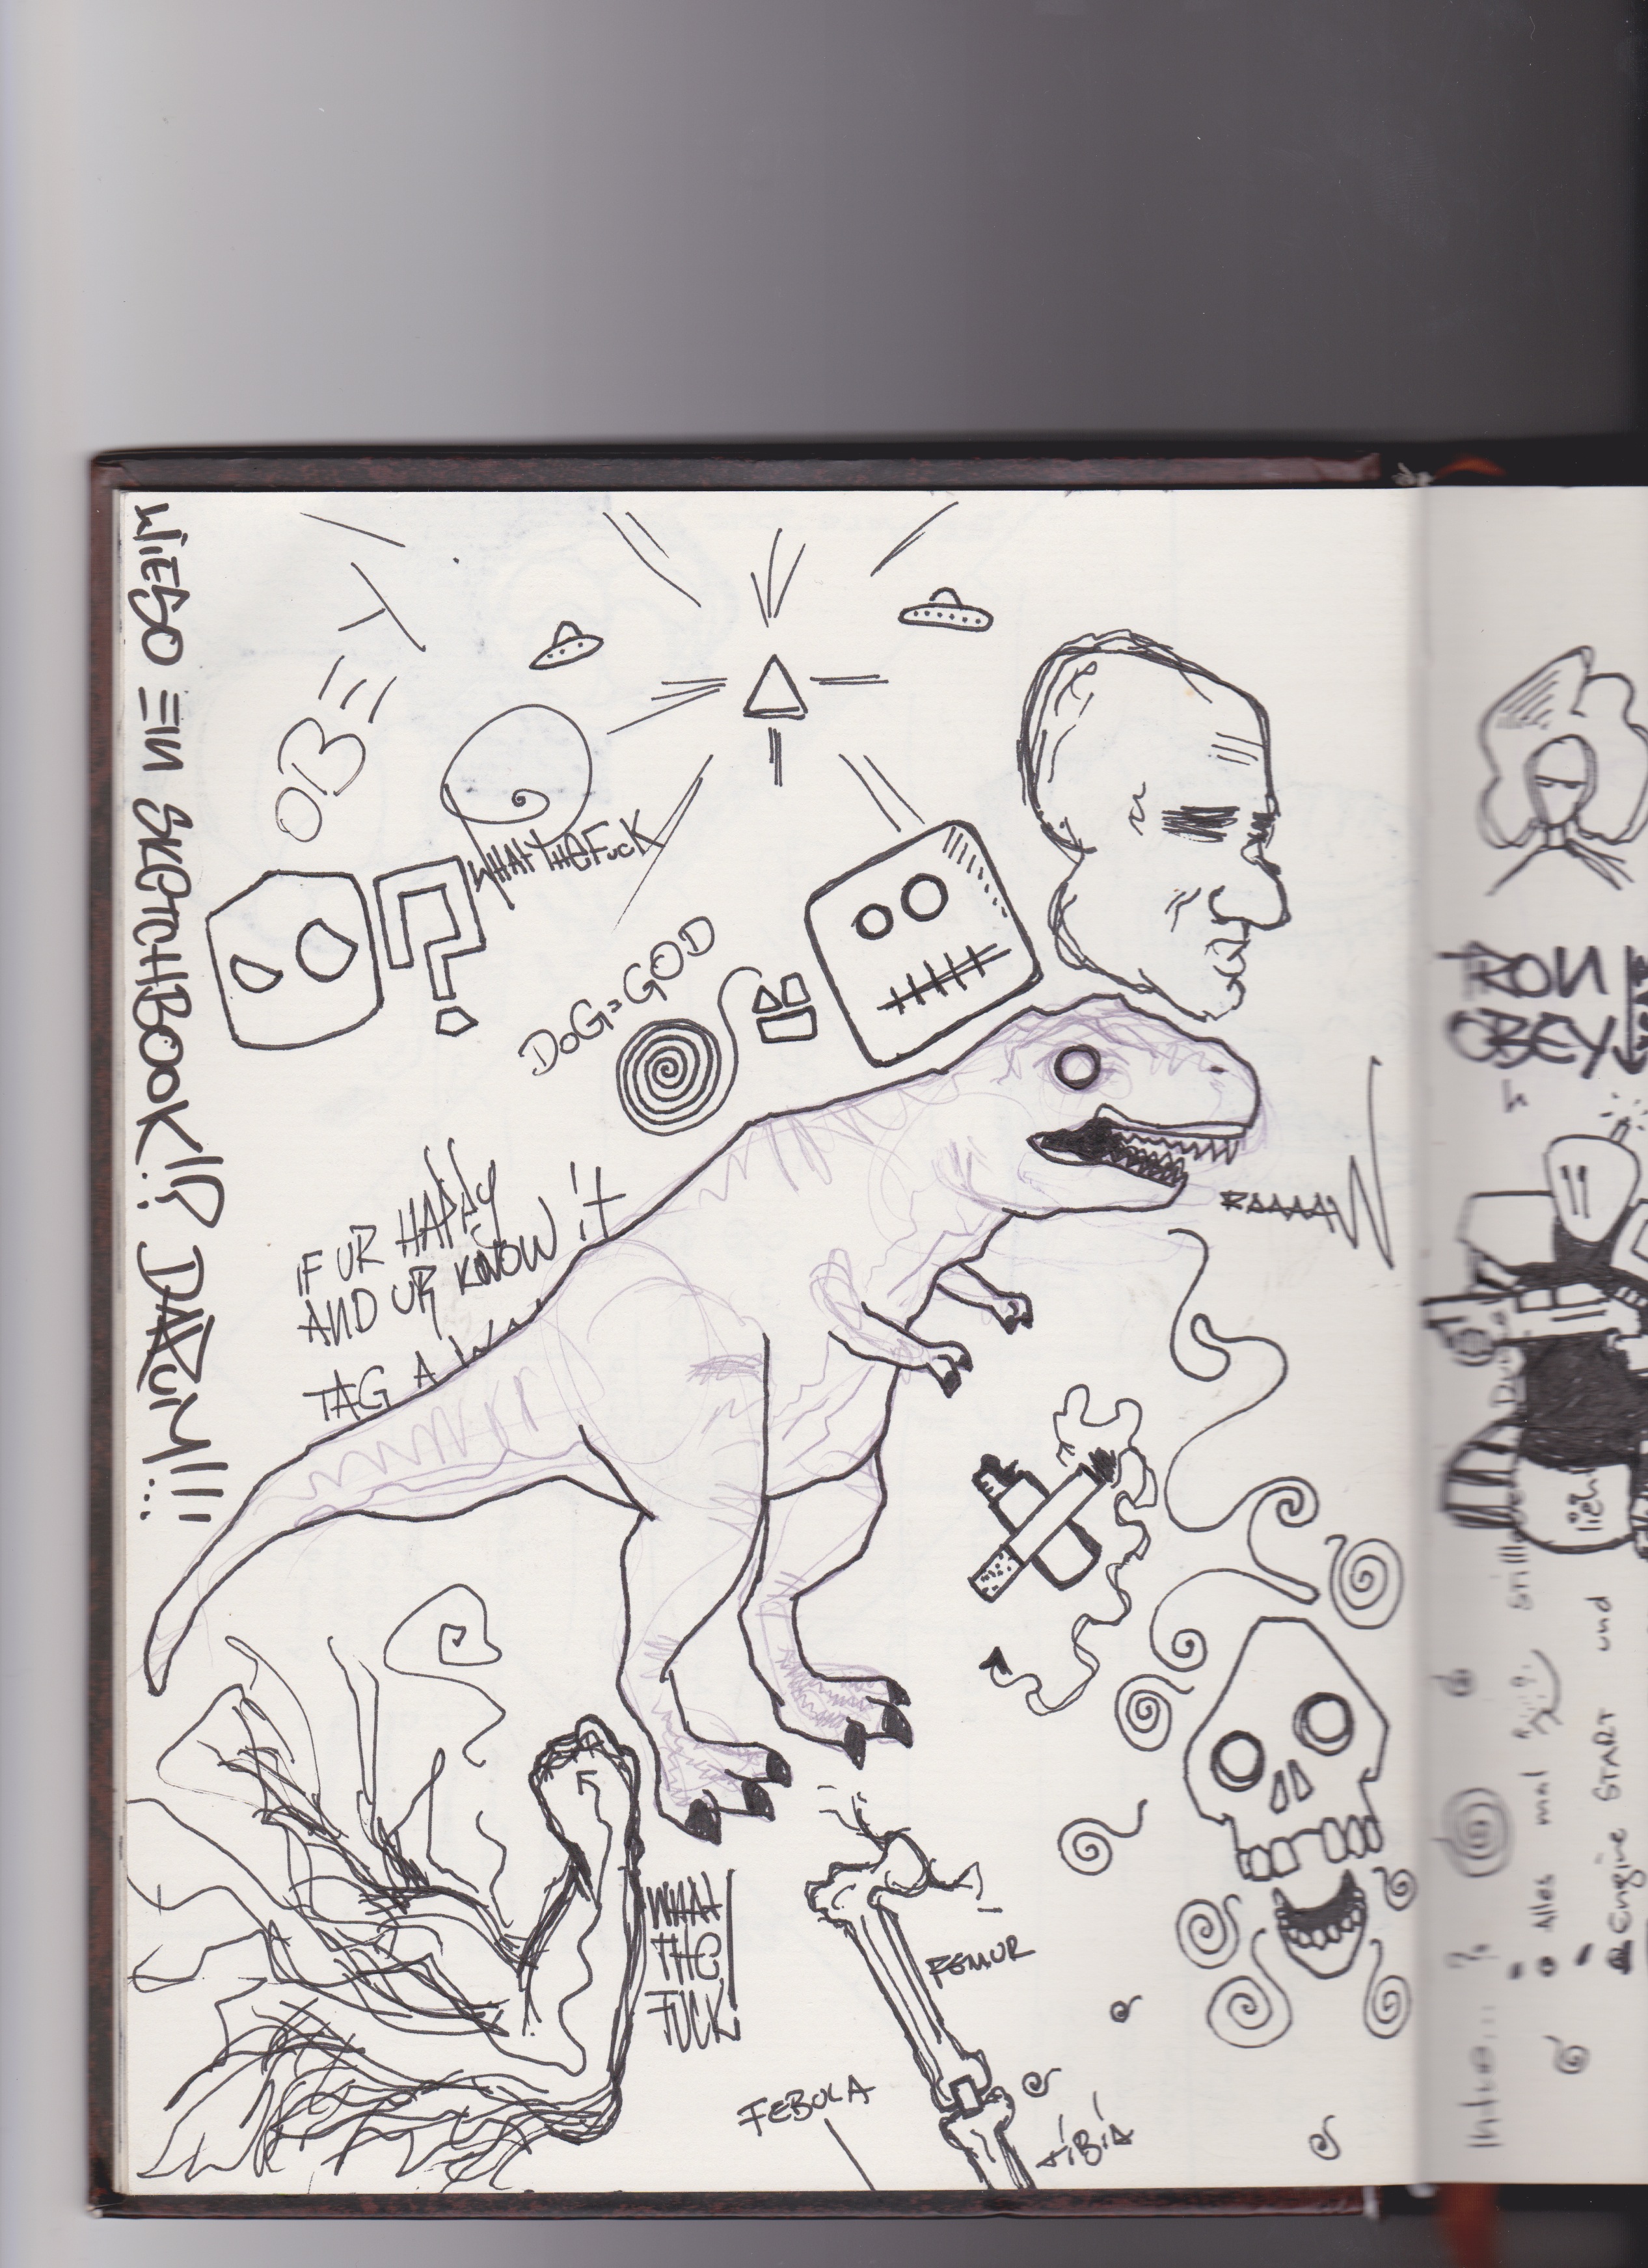 WiESO EiN SKETCHBOOK!? DARUM!!!...
OBEY
WHAT THE FUCK
DOG=GOD
IF UR HAPPY
AND UR KNOW iT
TAG A WA
RAAAAW
WHAT
THE
FUCK!
FEMUR
FEBULA
TiBiA
OBEY
Intro...?
Alles mal
Engine START und